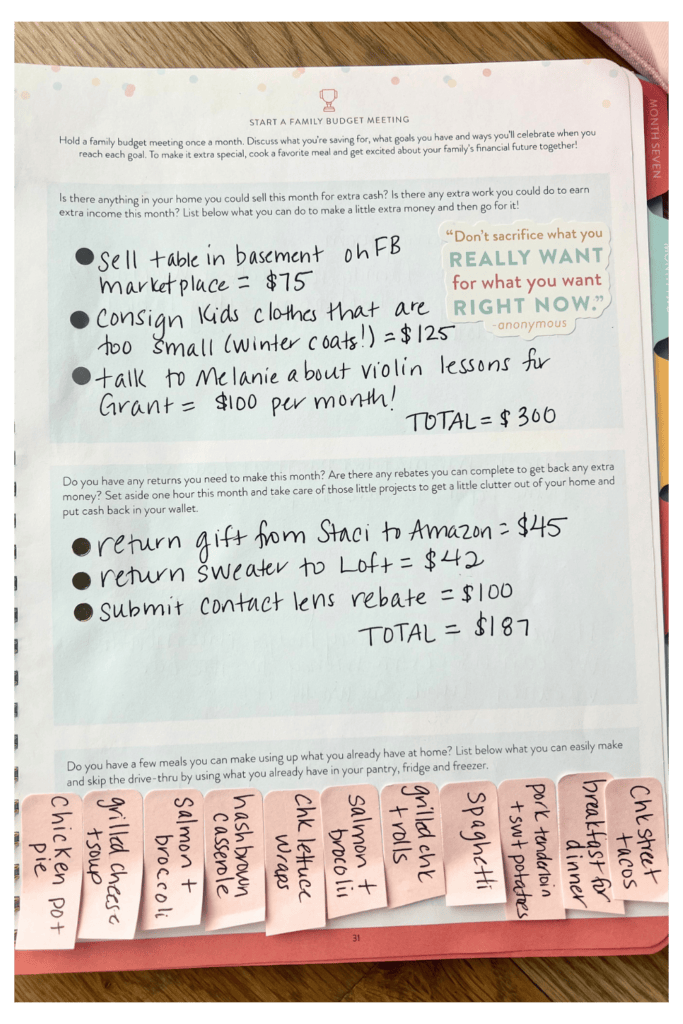 START A FAMILY BUDGET MEETING
Hold a family budget meeting once a month. Discuss what you're saving for, what goals you have and ways you'll celebrate when you
reach each goal. To make it extra special, cook a favorite meal and get excited about your family's financial future together!
MONTH SEVEN
Is there anything in your home you could sell this month for extra cash? Is there any extra work you could do to earn
extra income this month? List below what you can do to make a little extra money and then go for it!
"Don't sacrifice what you
REALLY WANT
for what you want
RIGHT NOW."
-anonymous
● Sell table in basement on FB
marketplace = $75
● Consign Kids clothes that are
too small (winter coats!) = $125
● talk to Melanie about violin lessons for
Grant = $100 per month!
TOTAL = $300
Do you have any returns you need to make this month? Are there any rebates you can complete to get back any extra
money? Set aside one hour this month and take care of those little projects to get a little clutter out of your home and
put cash back in your wallet.
● return gift from Staci to Amazon = $45
● return sweater to Loft = $42
● Submit contact lens rebate = $100
TOTAL = $187
Do you have a few meals you can make using up what you already have at home? List below what you can easily make
and skip the drive-thru by using what you already have in your pantry, fridge and freezer.
Chicken pot
pie
grilled cheese
+ soup
Salmon +
broccoli
hashbrown
casserole
Chk lettuce
wraps
Salmon +
brocolii
grilled chk
+ rolls
Spaghetti
pork tenderloin
+ swt potatoes
breakfast for
dinner
Chk street
tacos
31